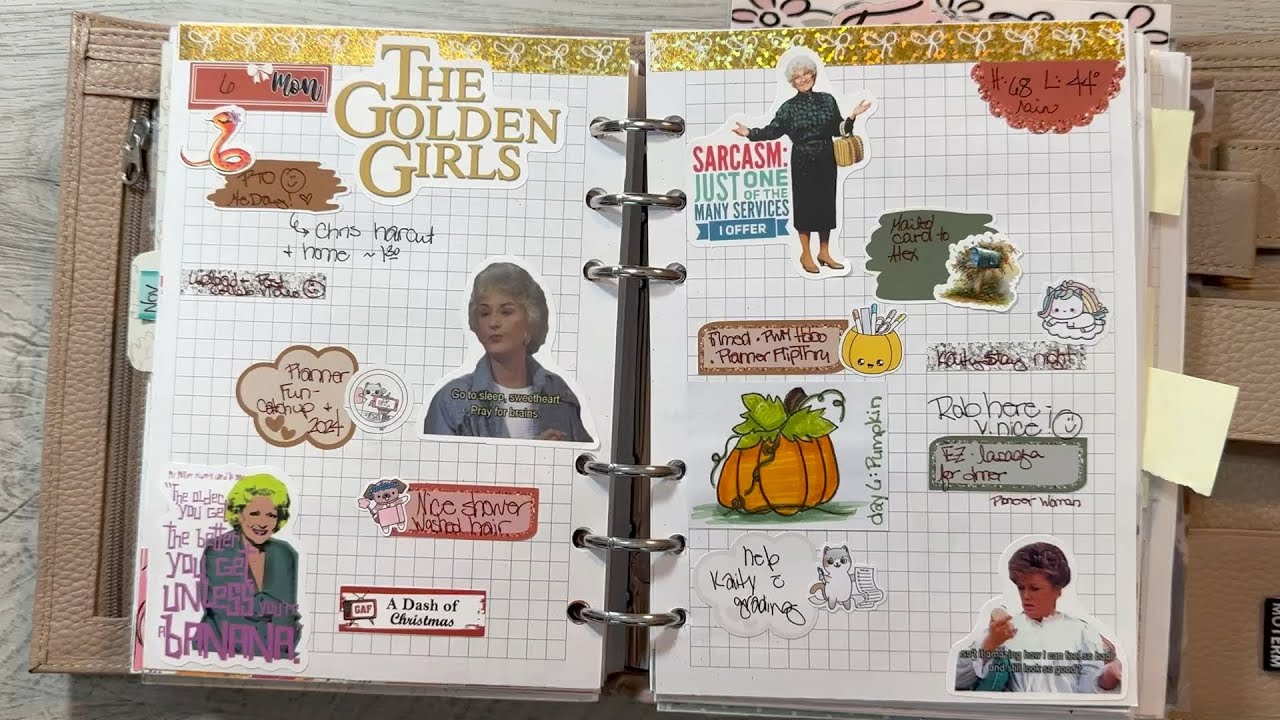 6 Mon
THE
GOLDEN
GIRLS
PTO
McDang!
↳ Chris haircut
+ home ~ 1:30
Nov
Go to sleep, sweetheart.
Pray for brains.
Planner
Fun-
Catchup +
2024
"The older
you get
the better
you get
UNLESS you're
a BANANA."
Nice shower
Washed hair
GAF
A Dash of
Christmas
H: 68 L: 44°
rain
SARCASM:
JUST ONE
OF THE
MANY SERVICES
I OFFER
Mailed
card to
Alex
Filmed • PWM
• Planner Flip Thru
Kaity stay night
Rob here
v. nice!
EZ lasagna
for dinner
Pioneer Woman
day 6: Pumpkin
help
Kaity c̄
gradings
Isn't it amazing how I can feel so bad
and still look so good?